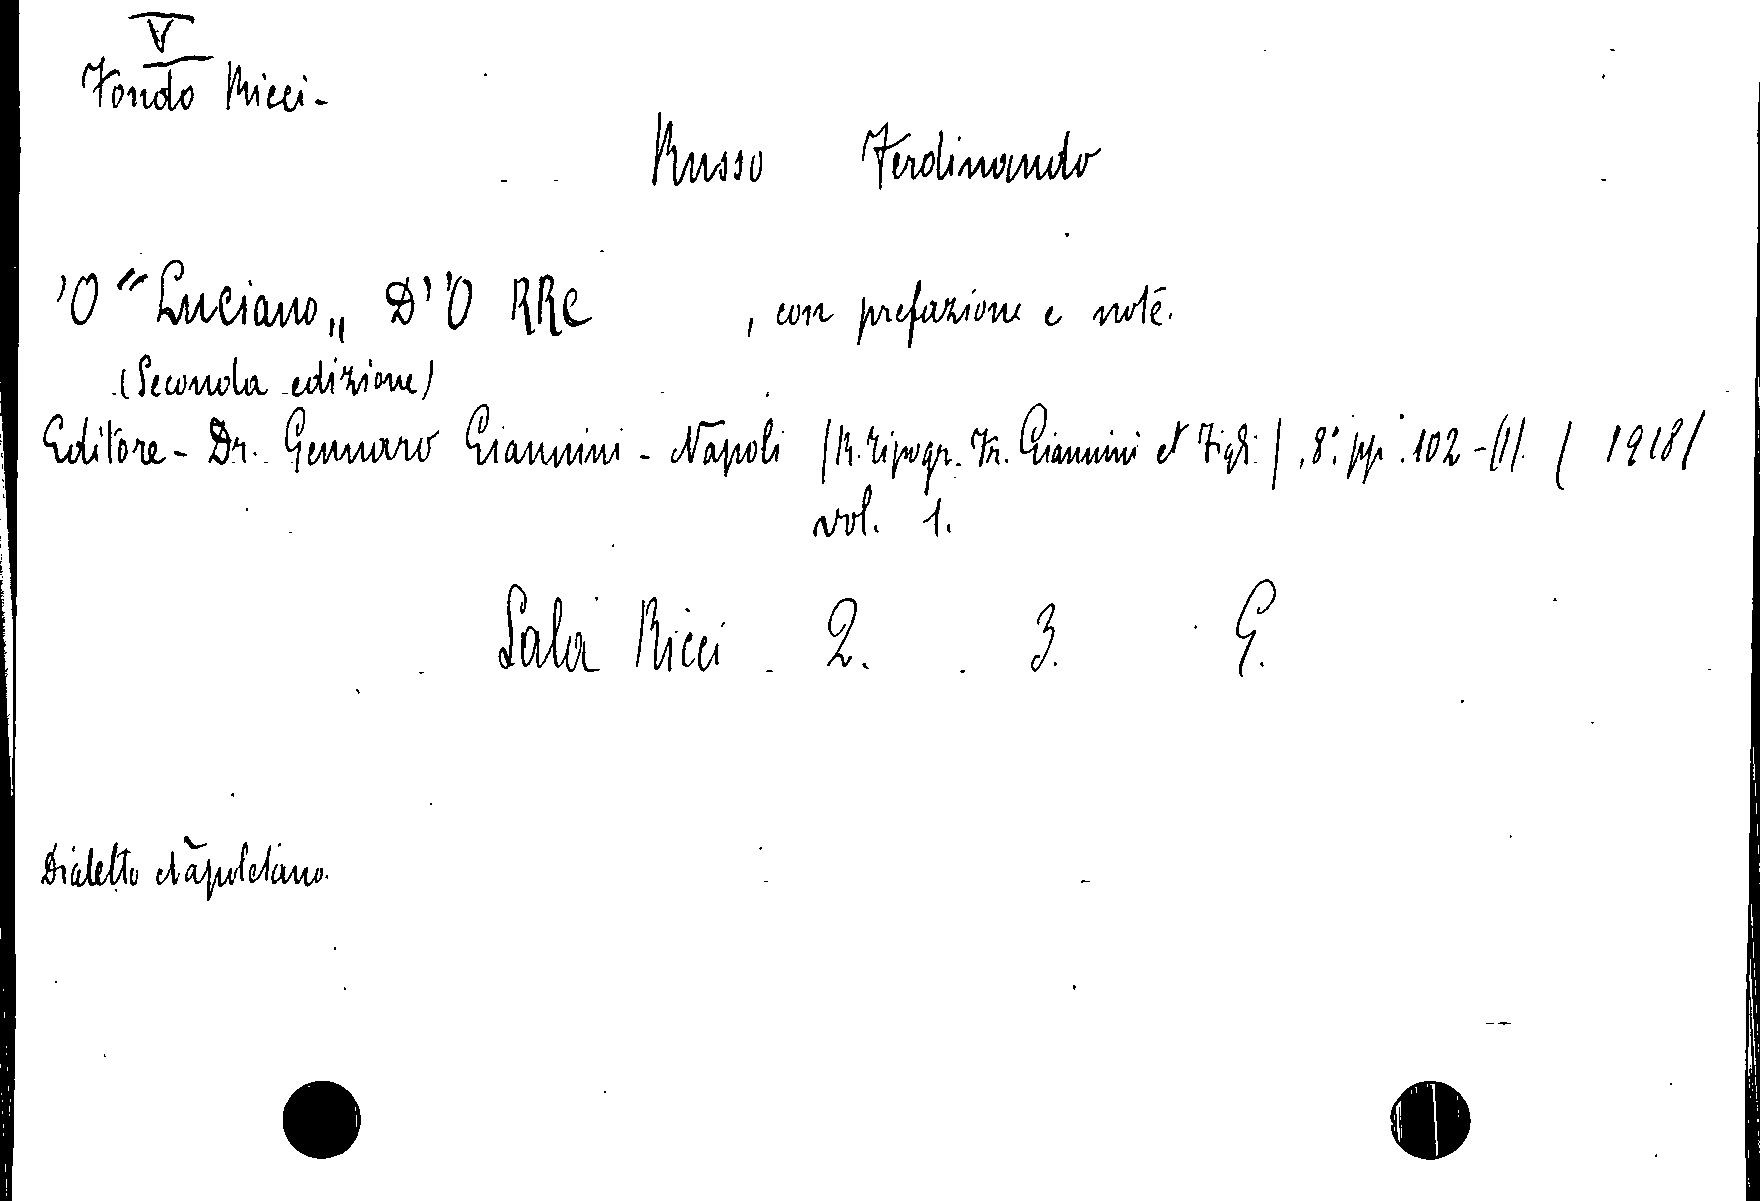 V
Fondo Ricci-
Russo Ferdinando
'O "Luciano„ D''O RRE , con prefazione e note.
(Seconda edizione)
Editore - Dr. Gennaro Giannini - Napoli (R. Tipogr. Fr. Giannini et Figli.), 8° pp. 102 -(1). ( 1918)
vol. 1.
Sala Ricci 2. 3. G.
Dialetto Napoletano.